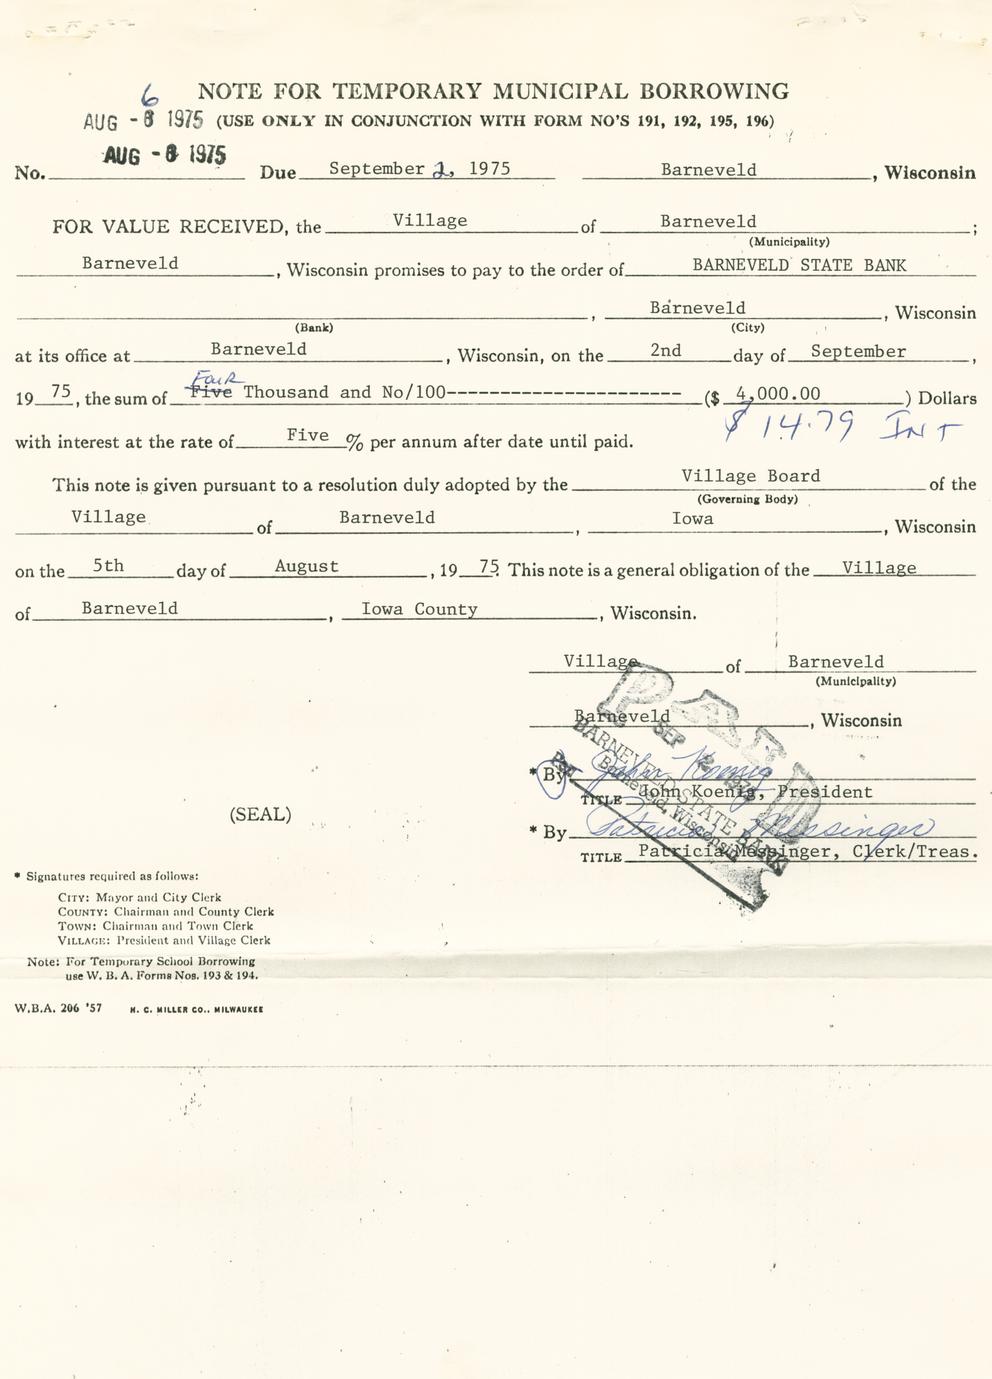 NOTE FOR TEMPORARY MUNICIPAL BORROWING
6
AUG - 8 1975 (USE ONLY IN CONJUNCTION WITH FORM NO'S 191, 192, 195, 196)
AUG - 8 1975
No. Due September 2, 1975 Barneveld, Wisconsin
FOR VALUE RECEIVED, the Village of Barneveld;
(Municipality)
Barneveld, Wisconsin promises to pay to the order of BARNEVELD STATE BANK
, Barneveld, Wisconsin
(Bank) (City)
at its office at Barneveld, Wisconsin, on the 2nd day of September,
Four
19 75, the sum of Five Thousand and No/100---------------------- ($ 4,000.00 ) Dollars
$ 14.79 INT
with interest at the rate of Five % per annum after date until paid.
This note is given pursuant to a resolution duly adopted by the Village Board of the
(Governing Body)
Village of Barneveld, Iowa, Wisconsin
on the 5th day of August, 19 75. This note is a general obligation of the Village
of Barneveld, Iowa County, Wisconsin.
Village of Barneveld
(Municipality)
Barneveld, Wisconsin
PAID
SEP 2 1975
BARNEVELD STATE BANK
Barneveld, Wisconsin
* By John Koenig
TITLE John Koenig, President
(SEAL)
* By Patricia Messinger
TITLE Patricia Messinger, Clerk/Treas.
* Signatures required as follows:
CITY: Mayor and City Clerk
COUNTY: Chairman and County Clerk
TOWN: Chairman and Town Clerk
VILLAGE: President and Village Clerk
Note: For Temporary School Borrowing
use W. B. A. Forms Nos. 193 & 194.
W.B.A. 206 '57 H. C. MILLER CO., MILWAUKEE